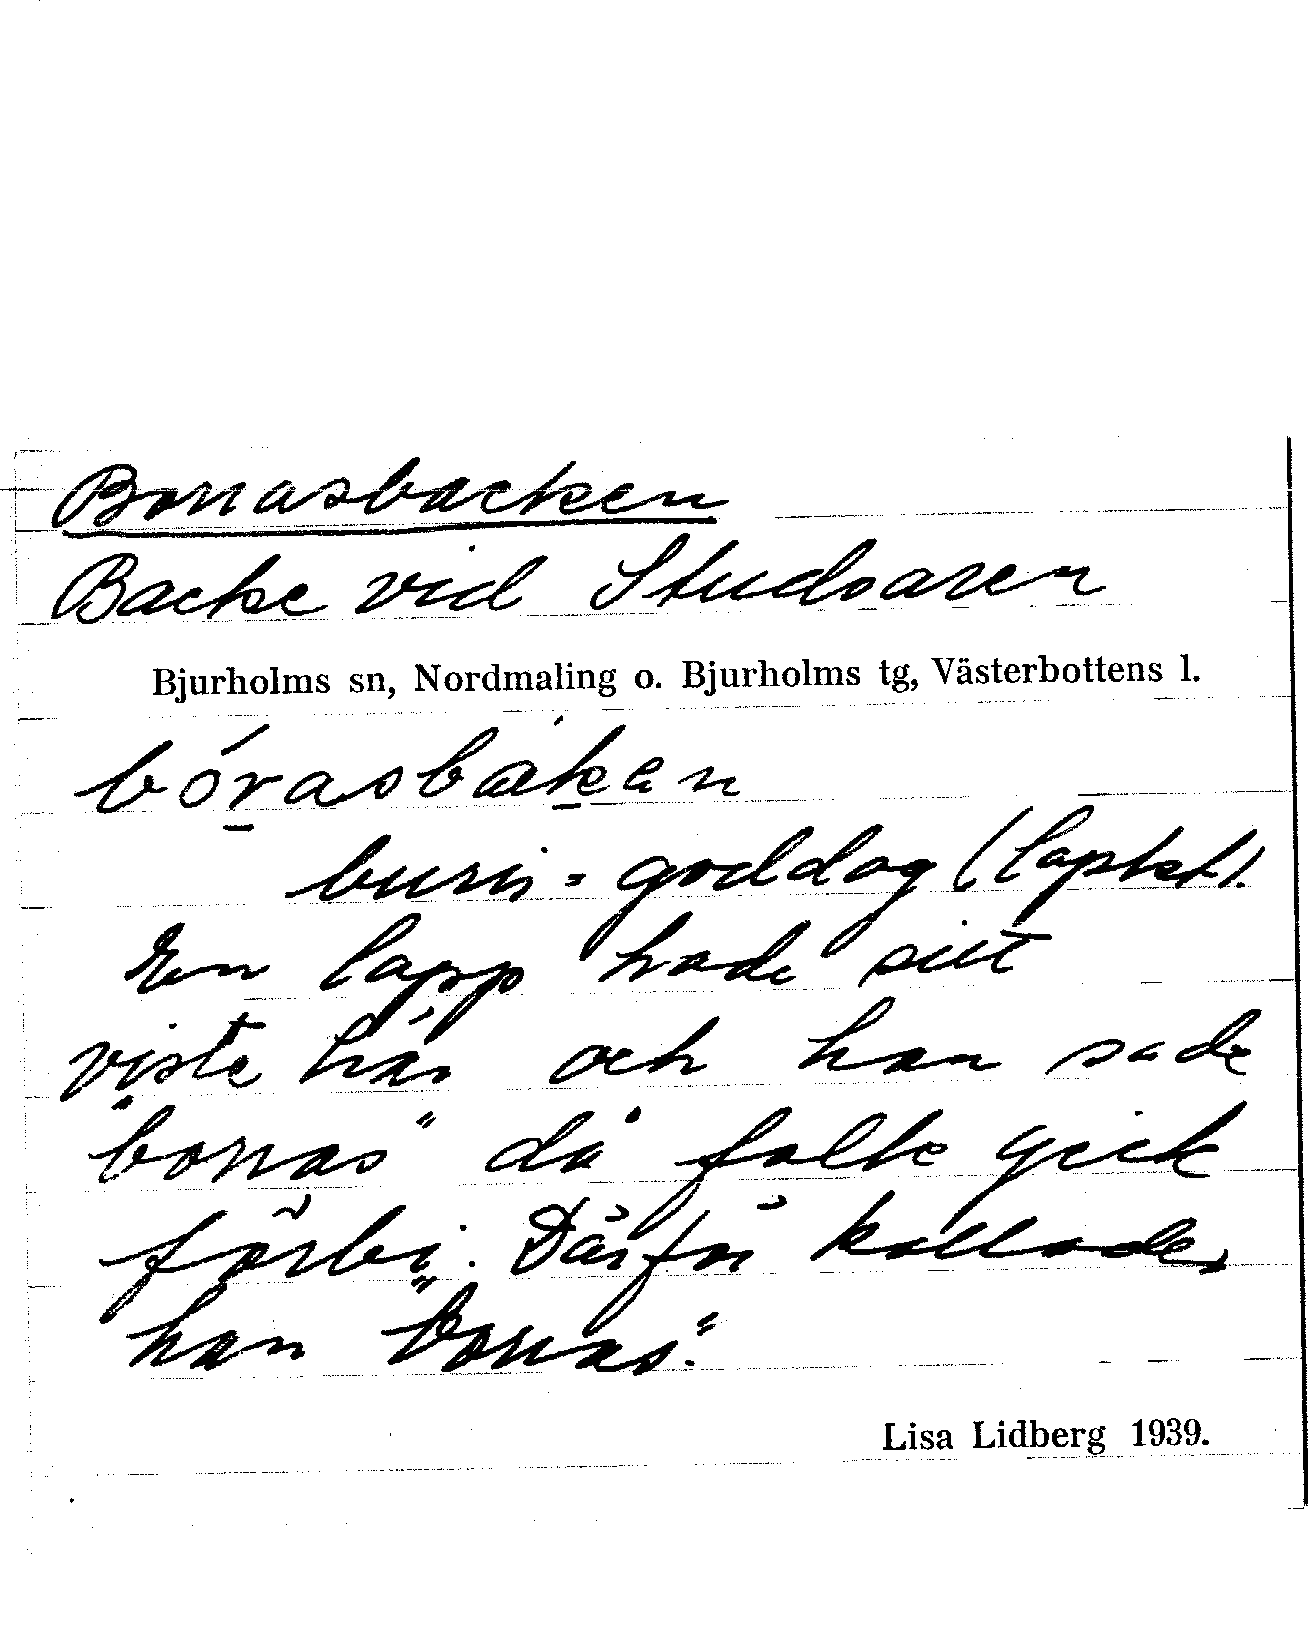 Borrasbacken
Backe vid Studsaren
Bjurholms sn, Nordmaling o. Bjurholms tg, Västerbottens l.
bór̲asbak̲en
buris = goddag (lapskt).
En lapp hade sitt
viste här och han sade
"borras" då folk gick
förbi. Därför kallades
han "borras".
Lisa Lidberg 1939.